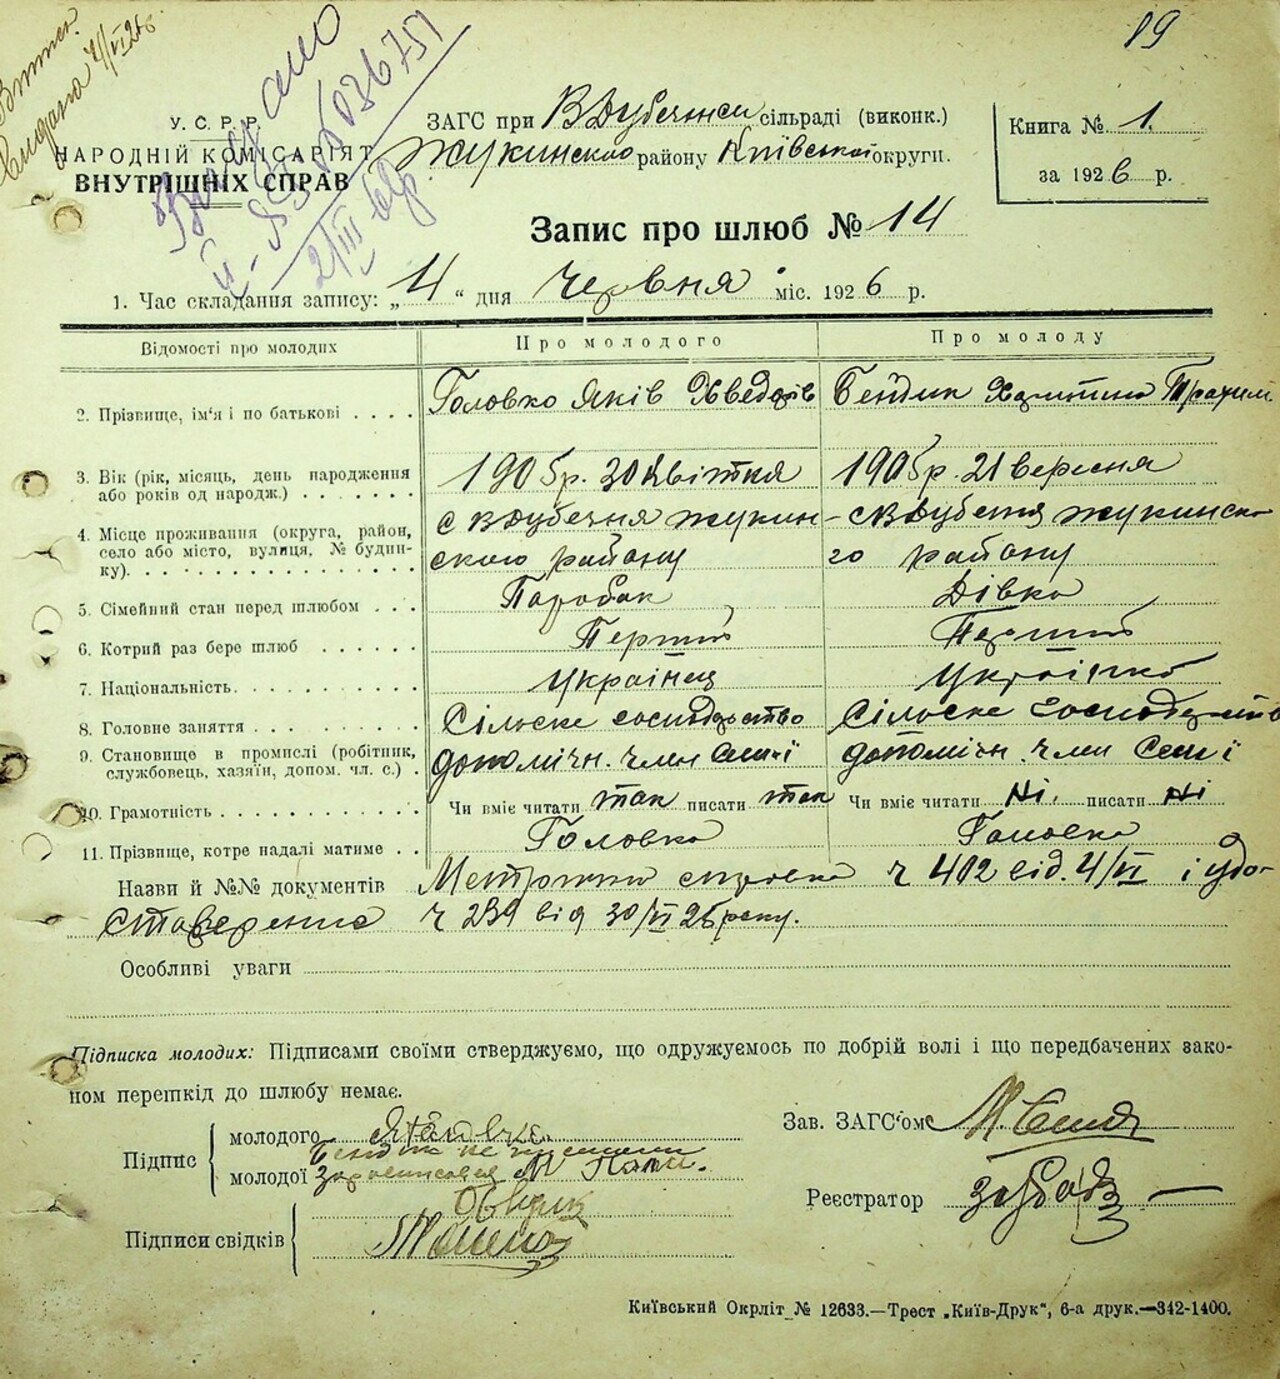 89
У. С. Р. Р.
НАРОДНІЙ КОМІСАРІЯТ
ВНУТРІШНІХ СПРАВ
ЗАГС при В Дубечнси сільраді (виконк.)
Жукинского району Київської округи.
Книга № 1.
за 1926 р.
Запис про шлюб № 14
1. Час складання запису: „ 4 “ дня червня міс. 1926 р.
Відомості про молодих Про молодого Про молоду
2. Прізвище, ім'я і по батькові . . . . Головко Яків Хведорів Бендик Харитина Трохим.
3. Вік (рік, місяць, день народження 1905 р. 30 Квітня 1905 р. 21 вересня
або років од народж.) . . . . . . .
4. Місце проживання (округа, район, с В Дубечня Жукин- с В Дубечня Жукинско-
село або місто, вулиця, № будин- ского району го району
ку). . . . . . . . . . . . . . . .
5. Сімейний стан перед шлюбом . . . Паробок Дівка
6. Котрий раз бере шлюб . . . . . . Перший Перший
7. Національність. . . . . . . . . . . Українец Українка
8. Головне заняття . . . . . . . . . . Сільске господарство Сільске Господарство
9. Становище в промислі (робітник, допомічн. член семї допомічн. член Семї
службовець, хазяїн, допом. чл. с.) .
10. Грамотність . . . . . . . . . . . . Чи вміє читати так писати так Чи вміє читати Ні. писати Ні
11. Прізвище, котре надалі матиме . . Головко Головка
Назви й №№ документів Метричная справка ч 402 від. 4/VI і удо-
стоверение ч 239 від 30/VI 25 року.
Особливі уваги
Підписка молодих: Підписами своїми стверджуємо, що одружуємось по добрій волі і що передбачених зако-
ном перешкід до шлюбу немає.
Підпис
молодого Я Головко
молодої
Підписи свідків
Зав. ЗАГС'ом
Реєстратор
Київський Окрліт № 12633.—Трест „Київ-Друк“, 6-а друк.—342-1400.